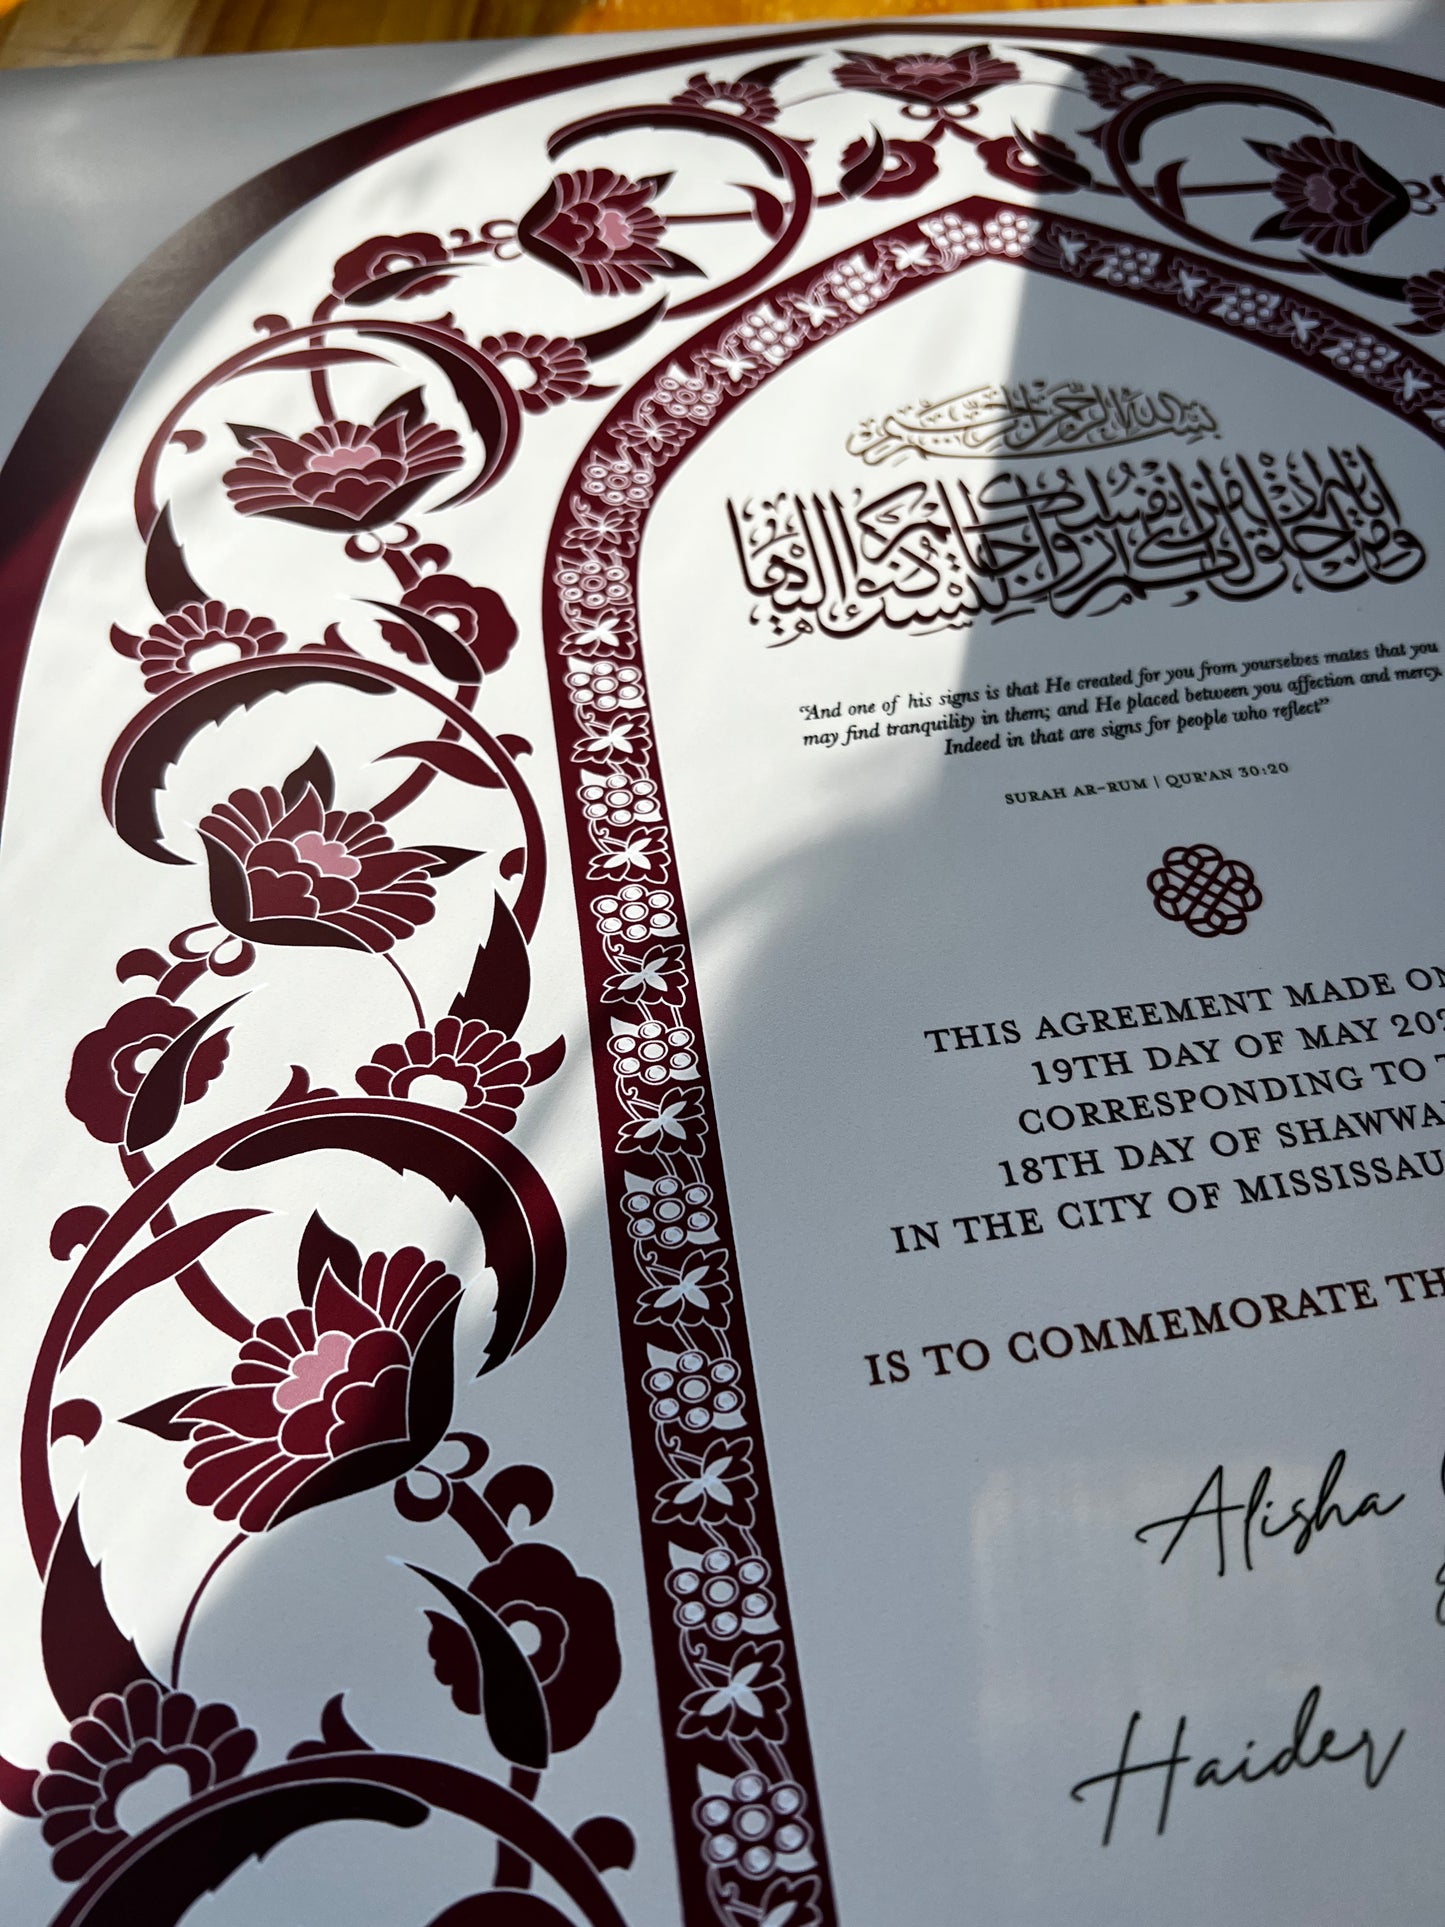 بسم الله الرحمن الرحيم
ومن آياته أن خلق لكم من أنفسكم أزواجا لتسكنوا إليها
“And one of his signs is that He created for you from yourselves mates that you
may find tranquility in them; and He placed between you affection and mercy.
Indeed in that are signs for people who reflect”
SURAH AR-RUM | QUR'AN 30:20
THIS AGREEMENT MADE
19TH DAY OF MAY
CORRESPONDING TO
18TH DAY OF
IN THE CITY OF
IS TO COMMEMORATE
Alisha
Haider